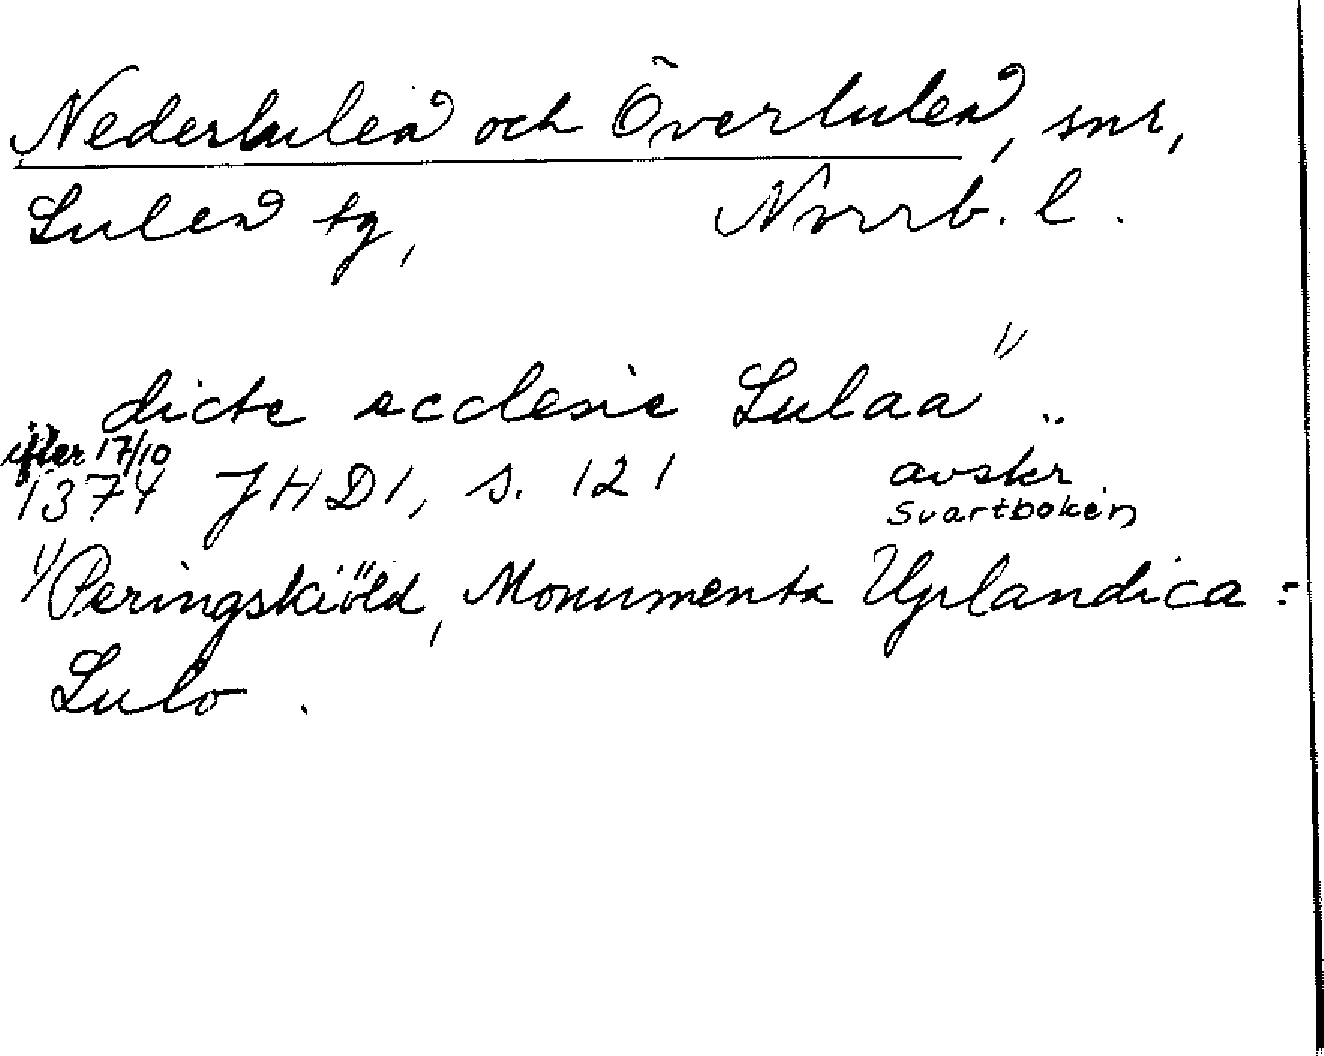 Nederluleå och Överluleå, snr,
Luleå tg, Norrb. l.
dicte ecclesie Lulaa 1) ..
efter 17/10
1374 JHD1, s. 121 avskr.
Svartboken
1) Peringskiöld, Monumenta Uplandica:
Lulo.